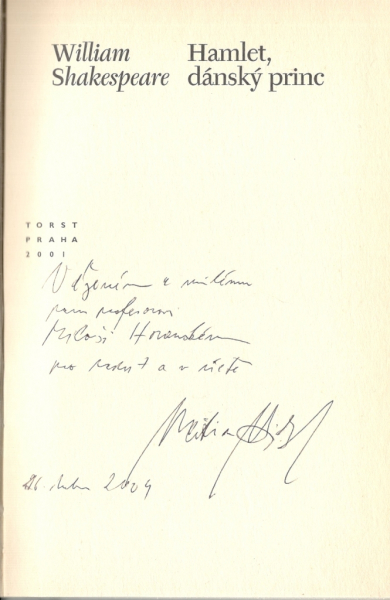 William
Shakespeare
Hamlet,
dánský princ
TORST
PRAHA
2001
Váženému a milému
panu profesorovi
Miloši Horanskému
pro radost a v úctě
26. dubna 2004